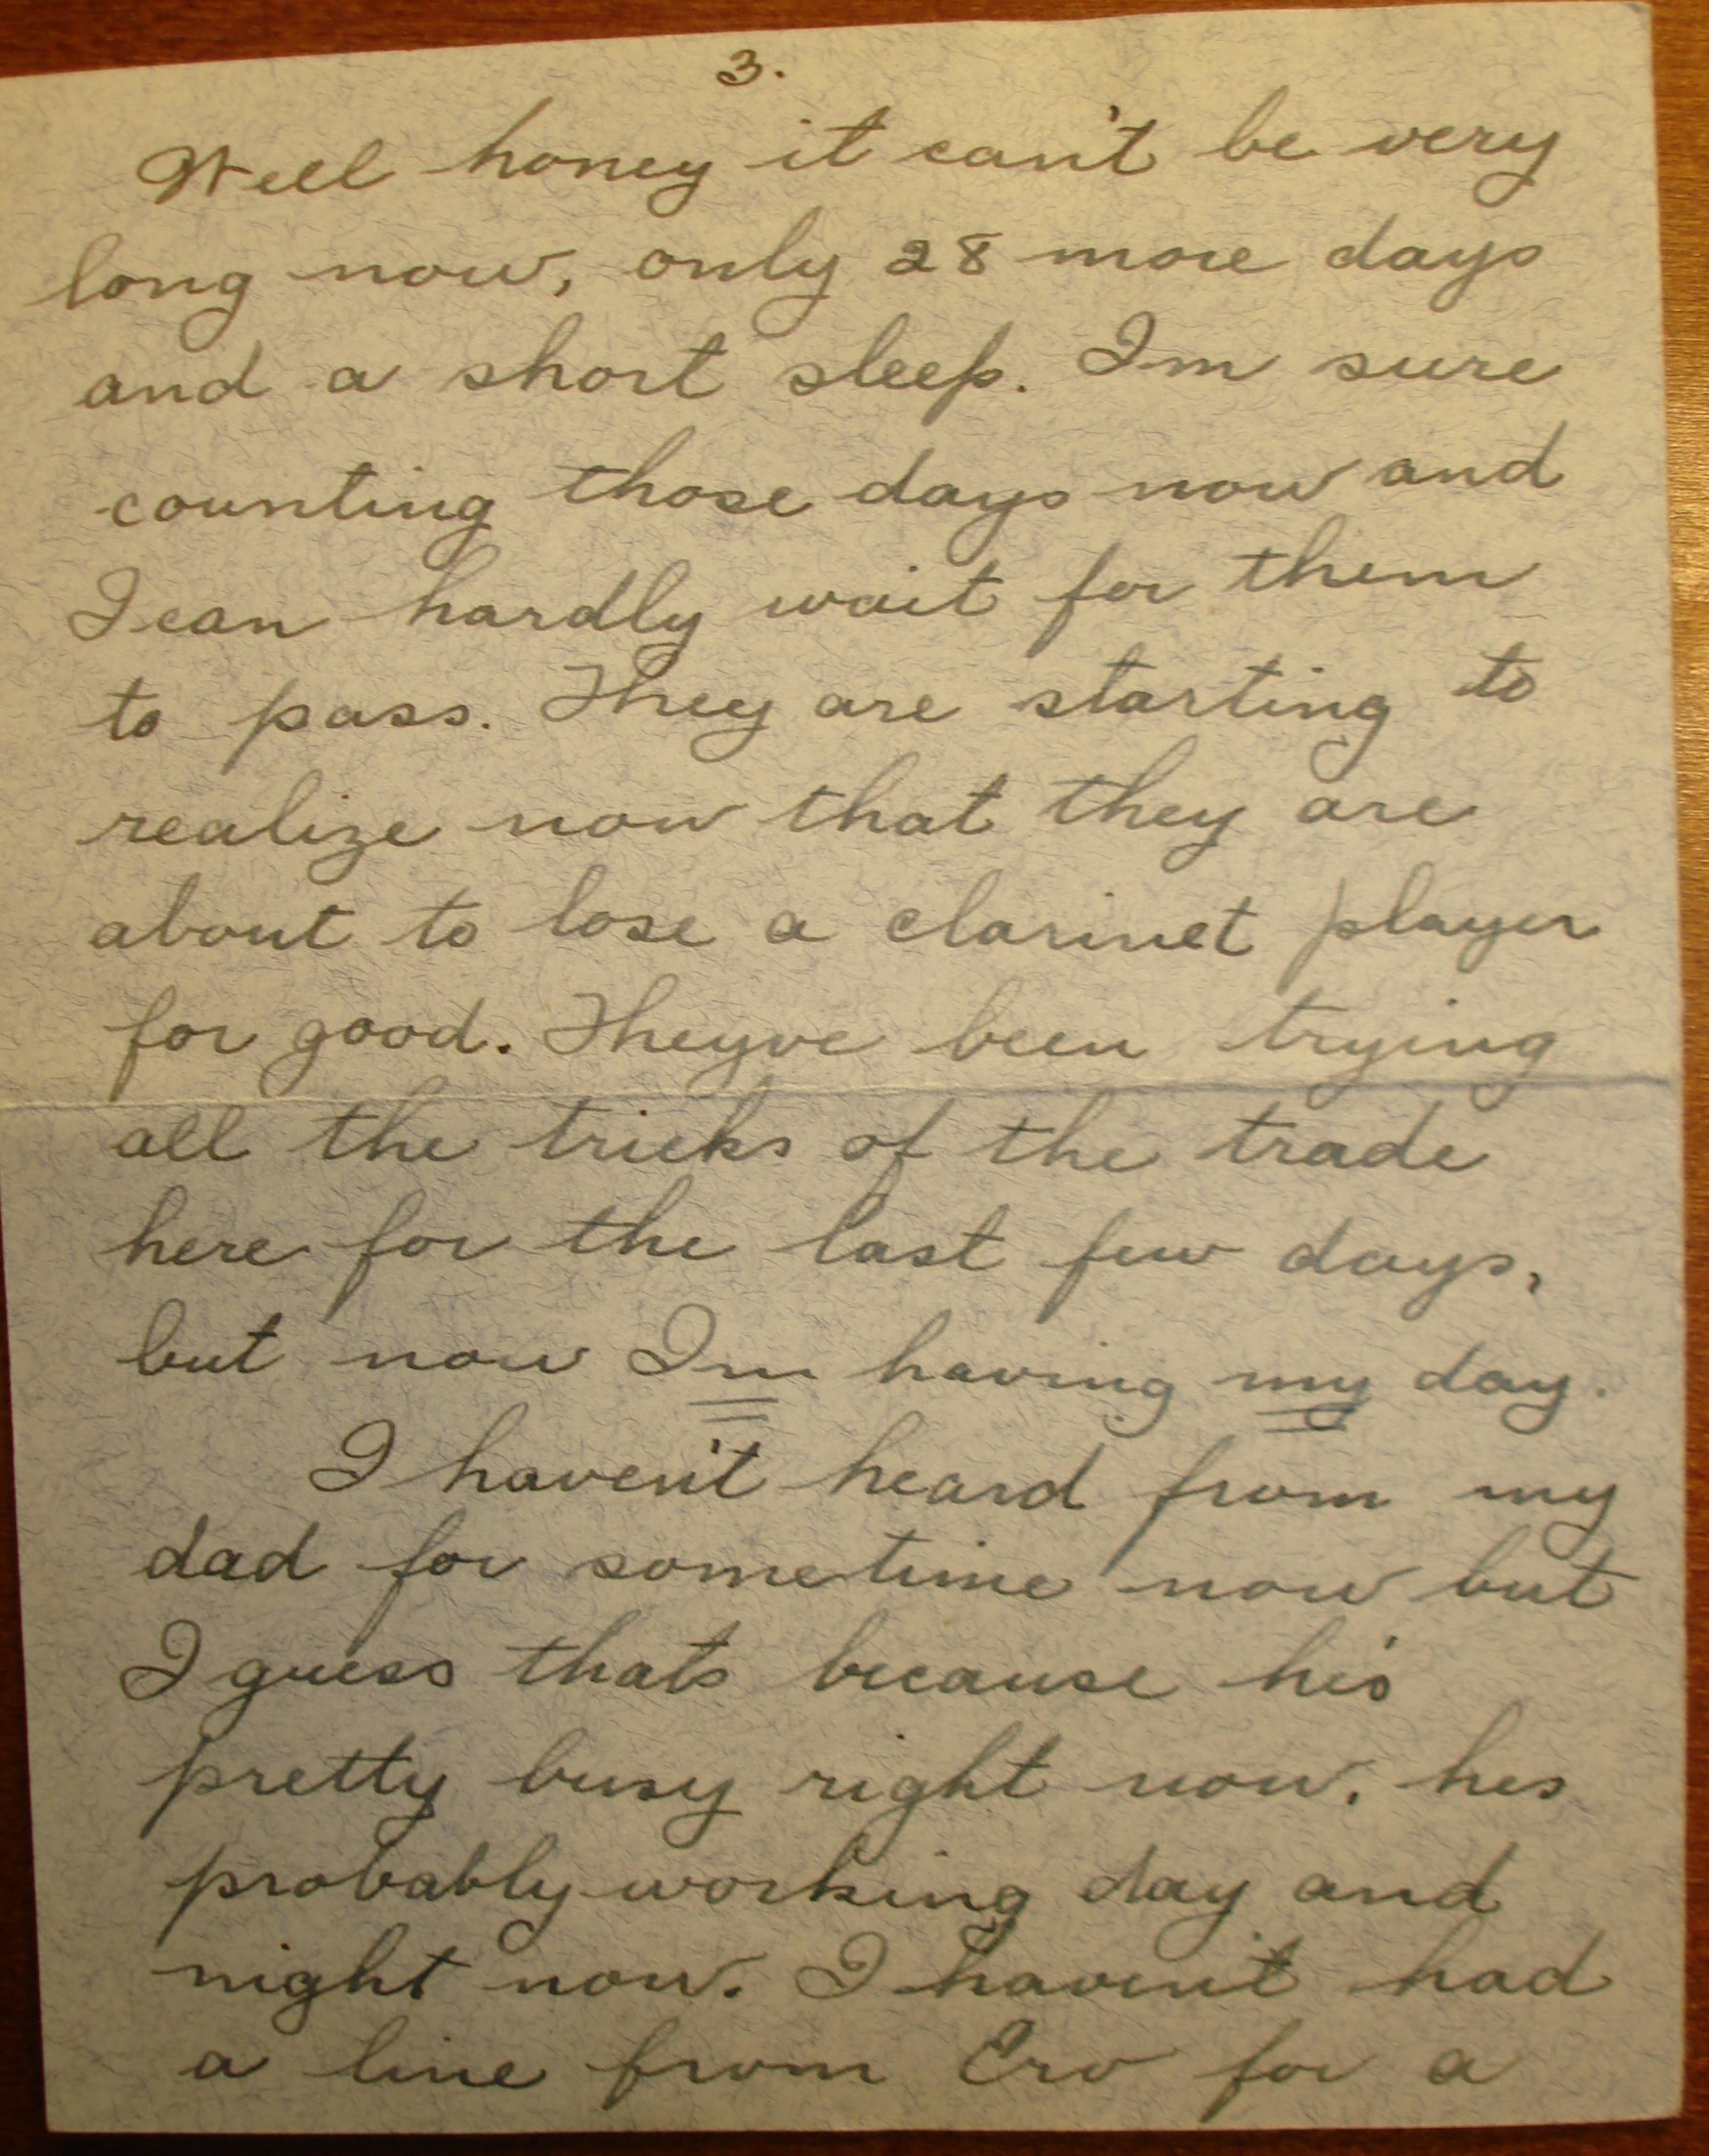 3.
Well honey it can't be very
long now, only 28 more days
and a short sleep. Im sure
counting those days now and
I can hardly wait for them
to pass. They are starting to
realize now that they are
about to lose a clarinet player
for good. Theyve been trying
all the tricks of the trade
here for the last few days,
but now Im having my day.
I haven't heard from my
dad for sometime now but
I guess thats because he's
pretty busy right now. hes
probably working day and
night now. I haven't had
a line from Erv for a